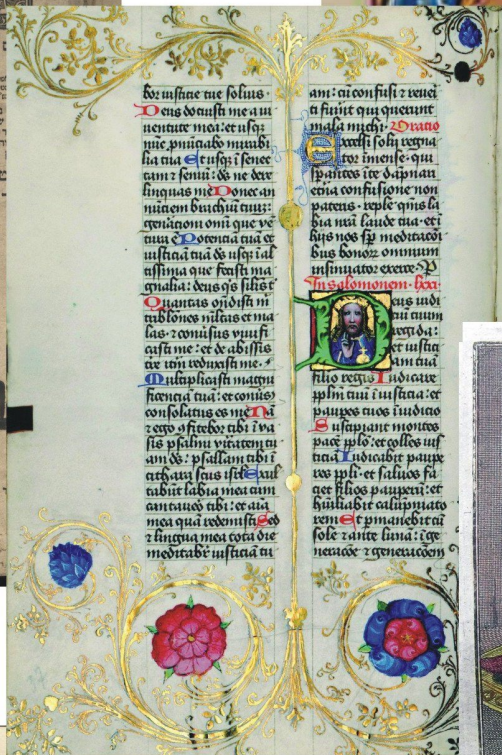 bor iusticie tue solius ·
Deus docuisti me a iu
uentute mea: et usqꝫ
nūc pnūciabo mirabi
lia tua Et usqꝫ ī senec
tam ⁊ seniū: ds ne dere
linquas me Donec an
nūciem brachiū tuū:
gen̄acioni omī que vē
tura ē Potenciā tuā et
iusticiā tuā ds usqꝫ ī al
tissima que fecisti ma
gnalia: deus q̄s silīs t̄
Quantas on̄disti m̄
tribl̄ones ml̄tas et ma
las · ⁊ conūsus viuifi
casti me: et de abissis
tre itm̄ reduxisti me ·
Multiplicasti magni
ficenciā tuā: et conūsꝰ
consolatus es me Nā
⁊ ego ꝯfitebor tibi ī va
sis psalmi v̄itatem tu
am ds: psallam tibi ī
cithara scūs isrl̄ Exul
tabūt labia mea cum
cantauero tibi: et aīa
mea quā redemisti Sed
⁊ lingua mea tota die
meditabr̄ iusticiā tu
am: cū confusi ⁊ reueri
ti fuīnt qui querunt
mala michi · Oratio
Excelsi soli regna
tor īmense · qui
etn̄a confusione non
pateris · reple qm̄s la
bia nr̄a laude tua · et ī
hijs nos sp̄ meditacōī
bus bonoꝝ omnium
insinuator exerce · P
In salomonem · lxxi
Deus iudi
ciū tuum
regi da:
et iustici
am tuā
filio regis Iudicare
pplm̄ tuū ī iusticia: et
paupes tuos ī iudicio
Suscipiant montes
pacē pplo: et colles ius
ticiā Iudicabit paupe
res ppli · et saluos fa
ciet filios paupeꝝ: et
hūiliabit calūpniato
rem Et pmanebit cū
sole ⁊ ante lunā: ī ge
neracōe ⁊ generacōem